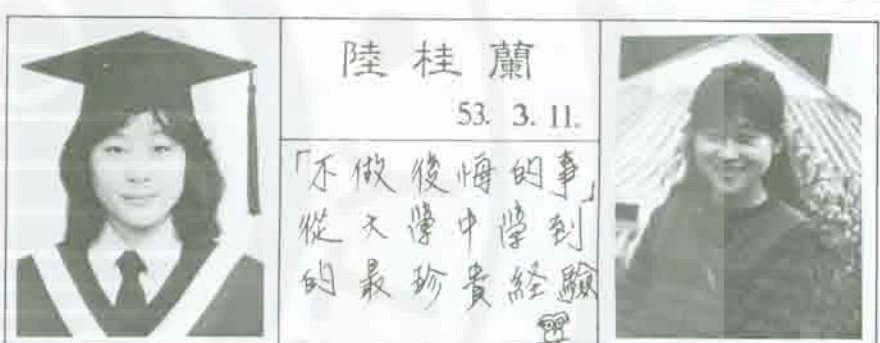 陸桂蘭
53. 3. 11.
「不做後悔的事」
從大學中學到
的最珍貴経驗